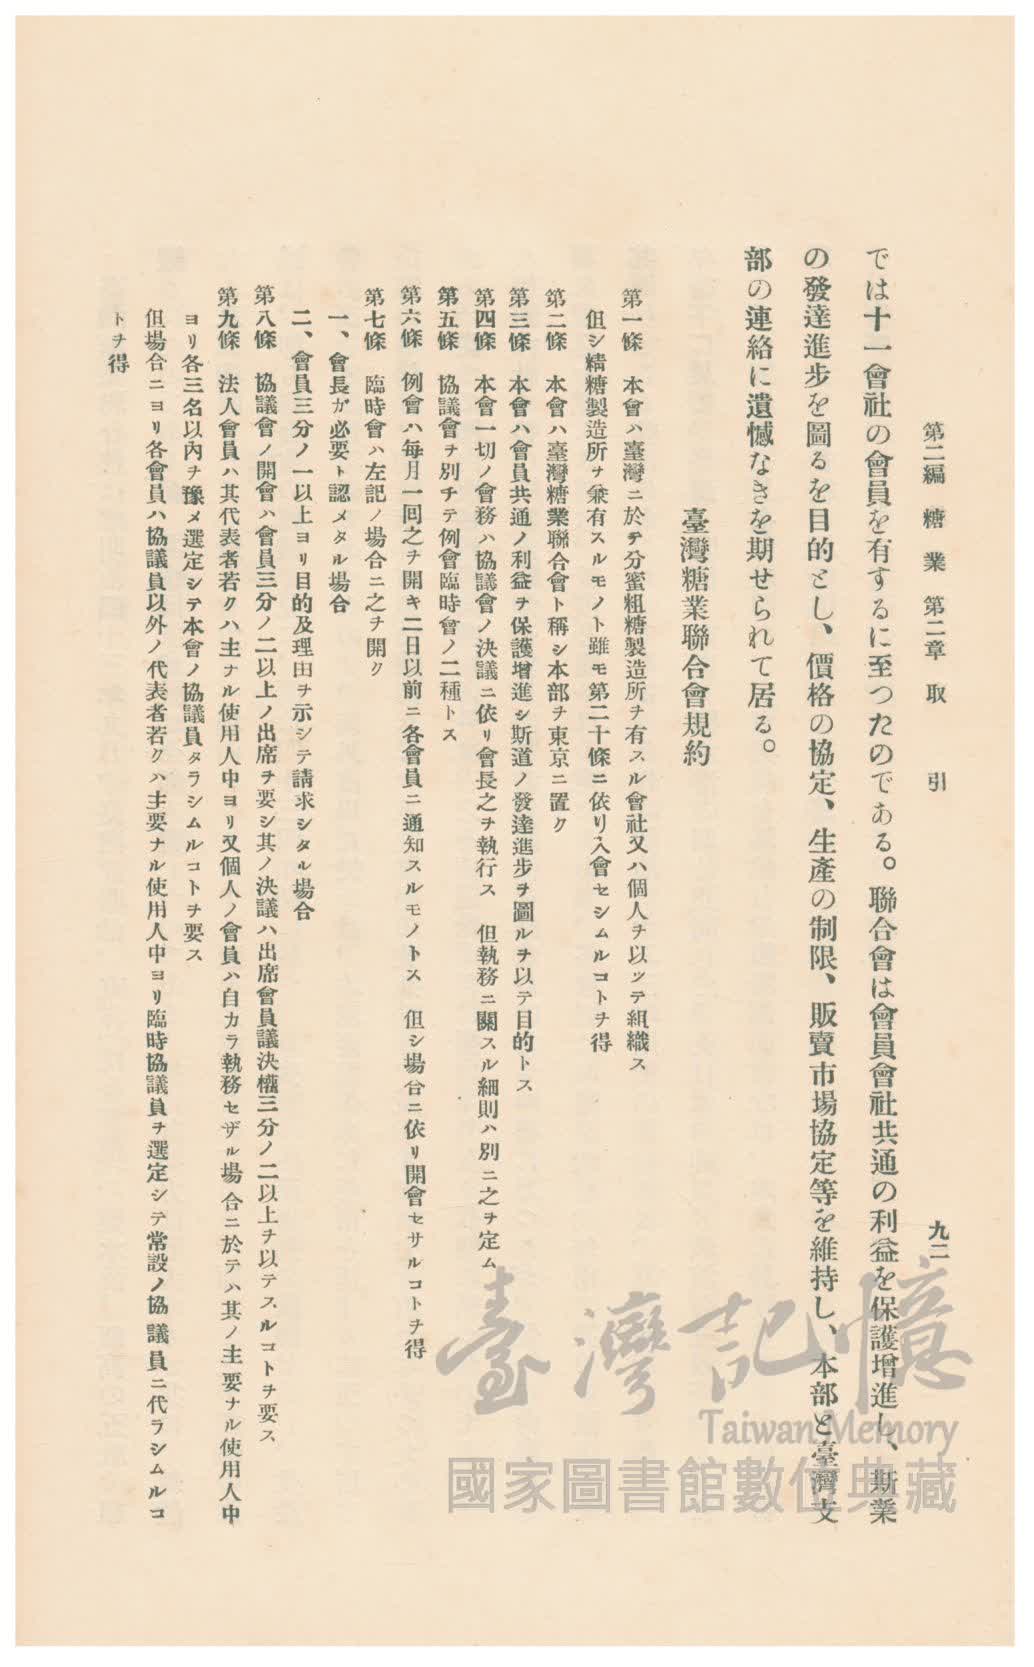 第二編 糖業 第二章 取引
九二
では十一會社の會員を有するに至つたのである。聯合會は會員會社共通の利益を保護增進し、斯業
の發達進步を圖るを目的とし、價格の協定、生產の制限、販賣市場協定等を維持し、本部と臺灣支
部の連絡に遺憾なきを期せられて居る。
臺灣糖業聯合會規約
第一條 本會ハ臺灣ニ於テ分蜜粗糖製造所チ有スル會社又ハ個人チ以ツテ組織ス
但シ精糖製造所サ兼有スルモノト雖モ第二十條ニ依リ入會セシムルコトチ得
第二條 本會ハ臺灣糖業聯合會ト稱シ本部チ東京ニ置ク
第三條 本會ハ會員共通ノ利益チ保護增進シ斯道ノ發達進步ヲ圖ルチ以テ目的トス
第四條 本會一切ノ會務ハ協議會ノ決議ニ依リ會長之チ執行ス 但執務ニ關スル細則ハ別ニ之チ定ム
第五條 協議會チ別チテ例會臨時會ノ二種トス
第六條 例會ハ每月一回之チ開キ二日以前ニ各會員ニ通知スルモノトス 但シ場合ニ依リ開會セサルコトチ得
第七條 臨時會ハ左記ノ場合ニ之チ開ク
一、會長ガ必要ト認メタル場合
二、會員三分ノ一以上ヨリ目的及理由チ示シテ請求シタル場合
第八條 協議會ノ開會ハ會員三分ノ二以上ノ出席チ要シ其ノ決議ハ出席會員議決權三分ノ二以上チ以テスルコトチ要ス
第九條 法人會員ハ其代表者若クハ主ナル使用人中ヨリ又個人ノ會員ハ自カラ執務セザル場合ニ於テハ其ノ主要ナル使用人中
ヨリ各三名以內チ豫メ選定シテ本會ノ協議員タラシムルコトチ要ス
但場合ニヨリ各會員ハ協議員以外ノ代表者若クハ主要ナル使用人中ヨリ臨時協議員チ選定シテ常設ノ協議員ニ代ラシムルコ
トチ得
臺灣記憶
Taiwan Memory
國家圖書館數位典藏